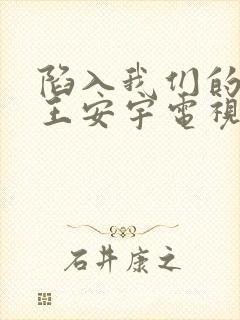 陷入我们的
王安宇電視
石井康之